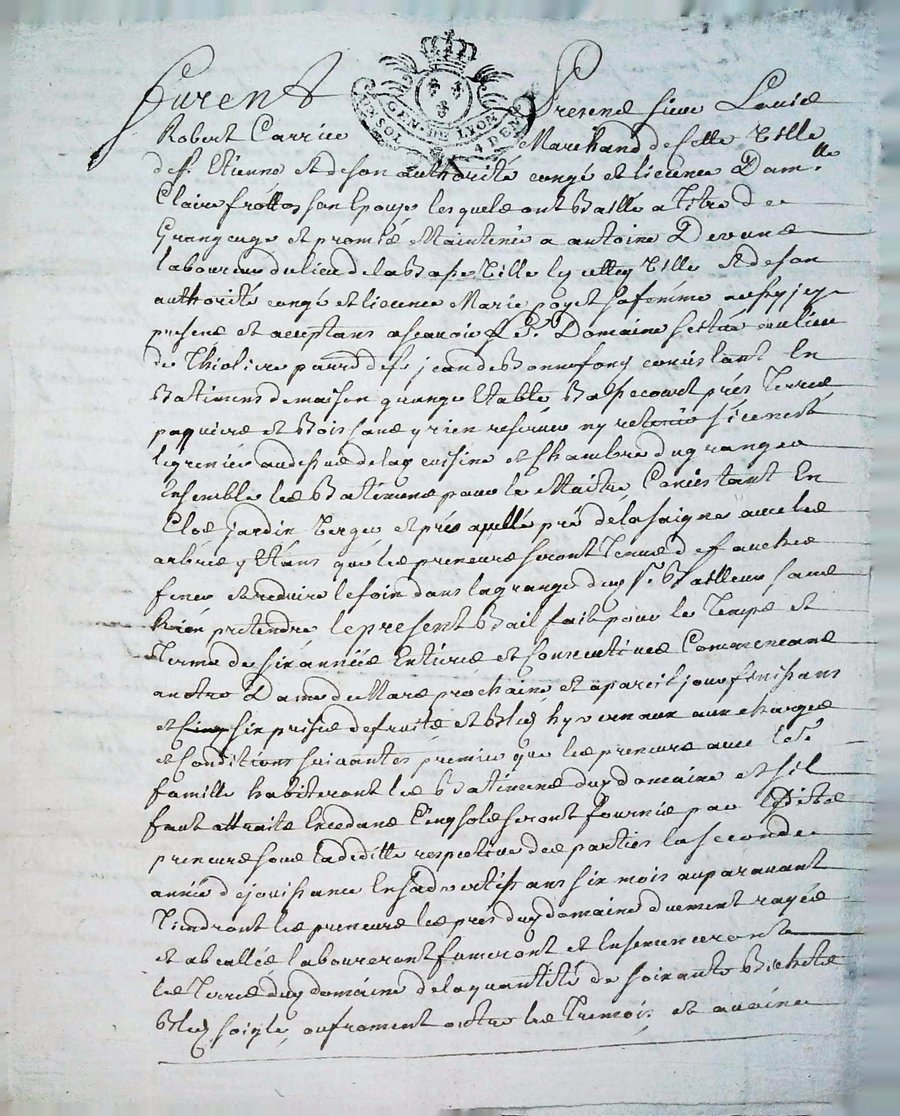 furent Presens sieur Louis
GEN. DE LYON
UN SOL 4 DEN
Robert Carrier Marchand de cette Ville
de St. Etienne et de son authorité congé et licence Dam.lle
Claire frottos son Epouse lesquels ont Baillé a titre de
Grangeage et promis Maintenir a antoine Devuns
laboureur du lieu de la Basse Ville lez cette Ville et de son
authorité congé et licence Marie poyet sa femme aussy icy
presens et acceptans ascavoir Domaine scitué au lieu
de Thioliere parroisse de St jean de Bonnefons consistant En
Batimens de maison grange Etable Basse court prés Terres
paquiers et Bois sans y rien reserver ny retenir si ce n'est
le grenier au dessus de la cuisine et chambre du granger
Ensemble les Batimens pour le Maitre Consistant En
Clos jardin Verger et prés apellé pré de la saigne avec les
arbres y Etans que les preneurs seront Tenus de faucher
fener et reduire le foin dans la grange dud sr. Bailleur sans
Rien pretendre le present Bail fait pour le Temps et
terme de six années Entieres et Consecutives Commencans
a notre Dame de Mars prochaine et a pareil jour finissans
et six prises de fruits et Bled hyvernaux aux charges
et Conditions suivantes premier que les preneurs avec leur
famille habiteront les Batimens dud domaine et s'il
faut attraits Excedans Cinq sols seront fournis par lesdits
preneurs sous la deditte respective des parties la seconde
année de jouissance En s'advertissans six mois auparavant
Tiendront les preneurs les prés dud domaine duement rayés
et abeallés laboureront fumeront et Ensemenceront
les Terres dud domaine de la quantité de soixante Bichets
Bled soigle ou froment outre les Tremois et avoine